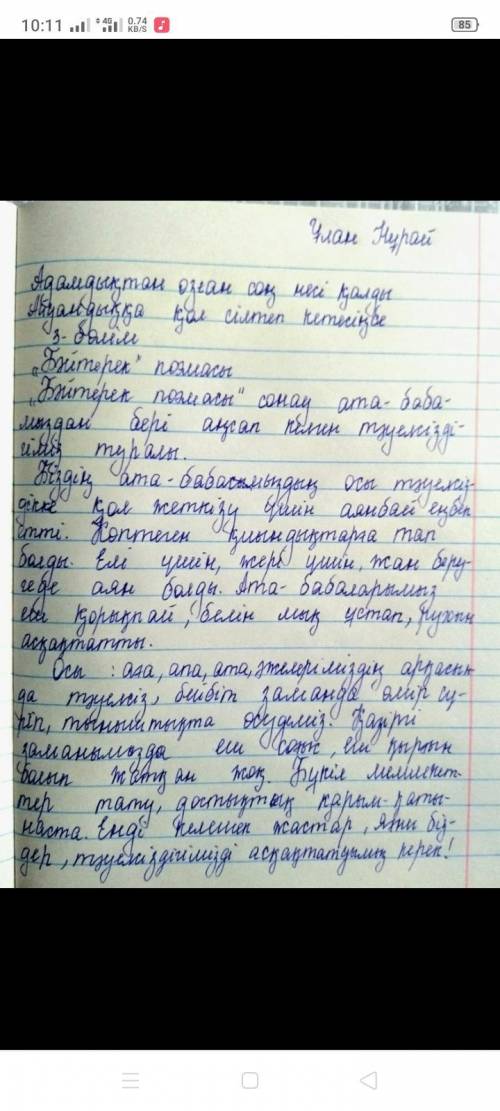 10:11
4G
0.74
KB/S
85
Ұлан Нұрай
Адамдықтан озған соң несі қалды
қол сілтеп кетесіңбе
3-бөлім
„Бәйтерек" поэмасы
„Бәйтерек поэмасы" сонау ата-баба-
мыздан бері аңсап келген тәуелсізді-
гіміз туралы.
Біздің ата-бабасымыздың осы тәуелсіз-
дікке қол жеткізу үшін аянбай еңбек
етті. Көптеген қиындықтарға тап
болды. Елі үшін, жері үшін, жан беру-
геде аян болды. Ата-бабаларымыз
еш қорықпай, белін мық ұстап, рухын
асқақтатты.
Осы : аға, апа, ата, әжелеріміздің арқасын-
да тәуелсіз, бейбіт заманда өмір сү-
ріп, тыныштықта өсудеміз. Қазіргі
заманымызда еш соғыс, еш қырғын
болып жатқан жоқ. Бүкіл мемлекет-
тер тату, достықтық қарым-қаты-
наста. Енді келешек жастар, яғни біз-
дер, тәуелсіздігімізді асқақтатуымыз керек!